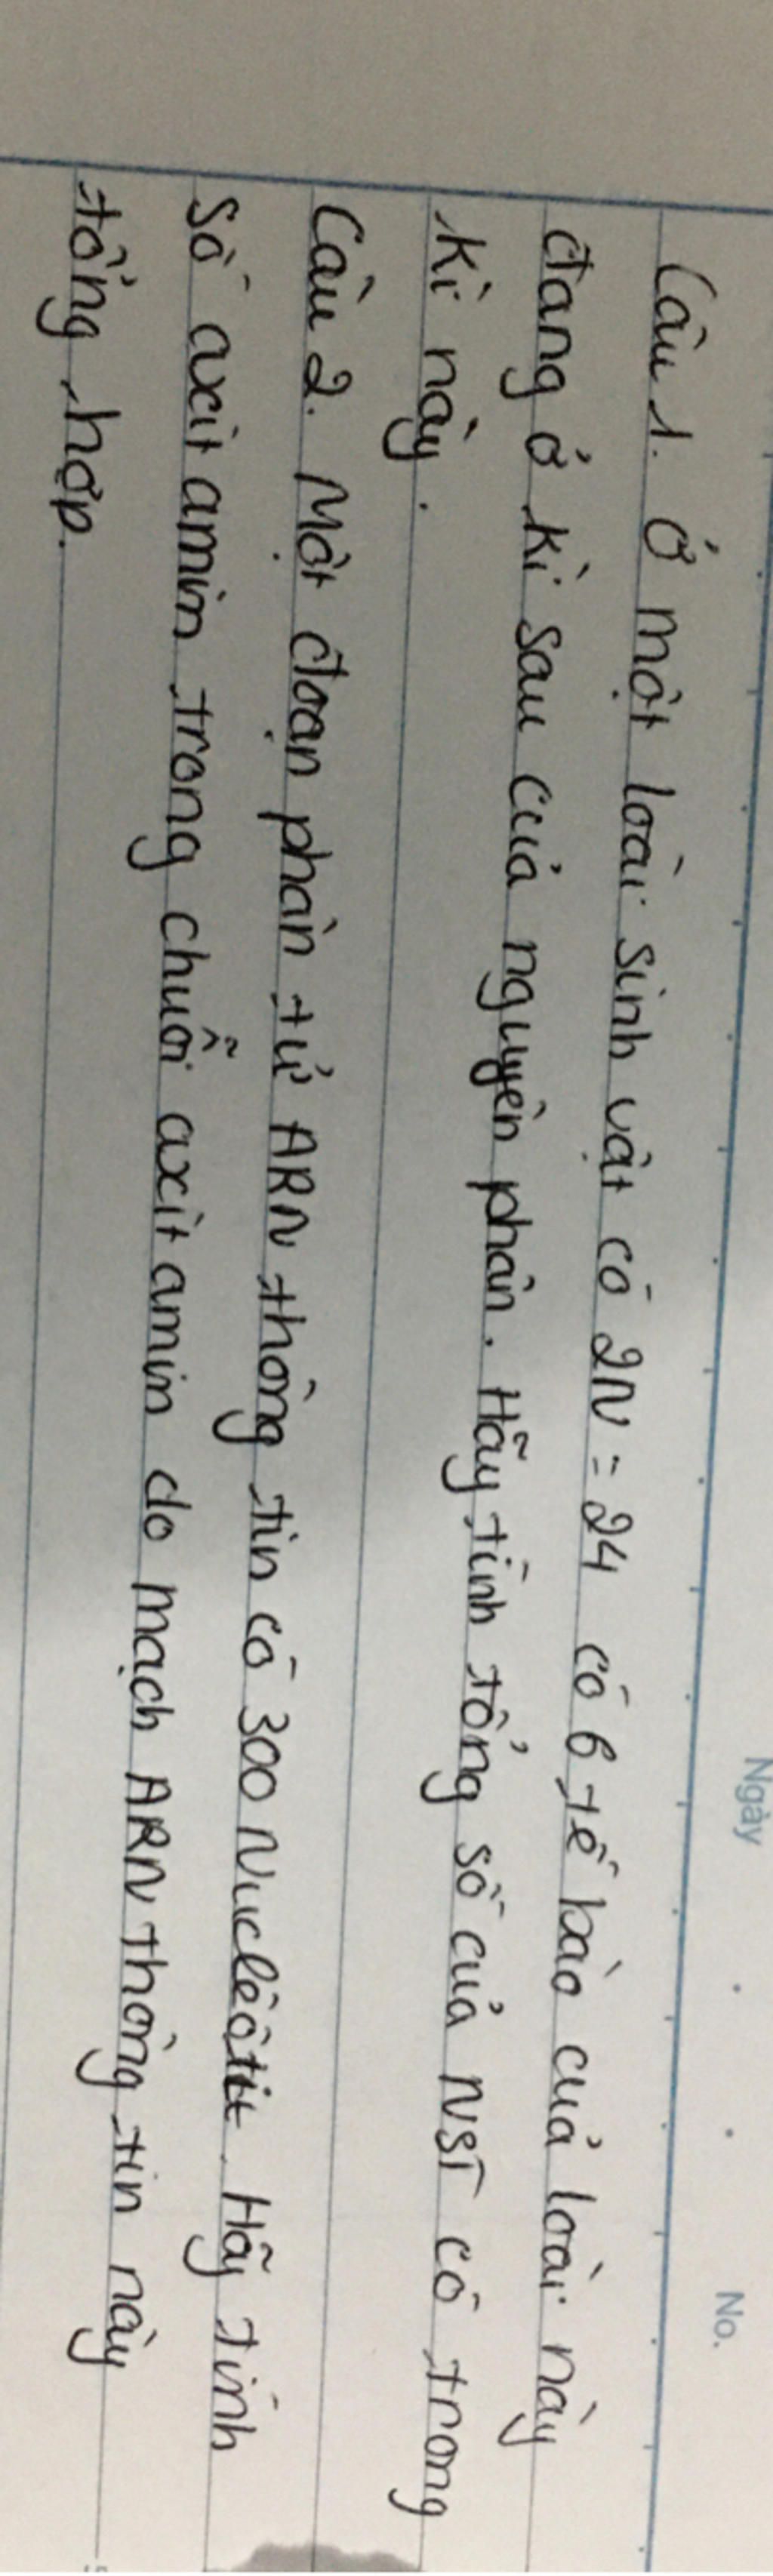 Ngày
No.
Câu 1. Ở một loài sinh vật có 2N = 24 có 6 tế bào của loài này
đang ở kì sau của nguyên phân. Hãy tính tổng số của NST có trong
kì này.
Câu 2. Một đoạn phân tử ARN thông tin có 300 Nuclêôtit. Hãy tính
số axit amin trong chuỗi axit amin do mạch ARN thông tin này
tổng hợp.